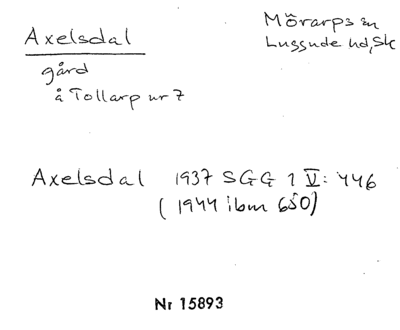 Axelsdal
Mörarps sn
Luggude hd, Sk
gård
å Tollarp nr 7
Axelsdal 1937 SGG 1 V: 446
(1944 ibm 650)
Nr 15893